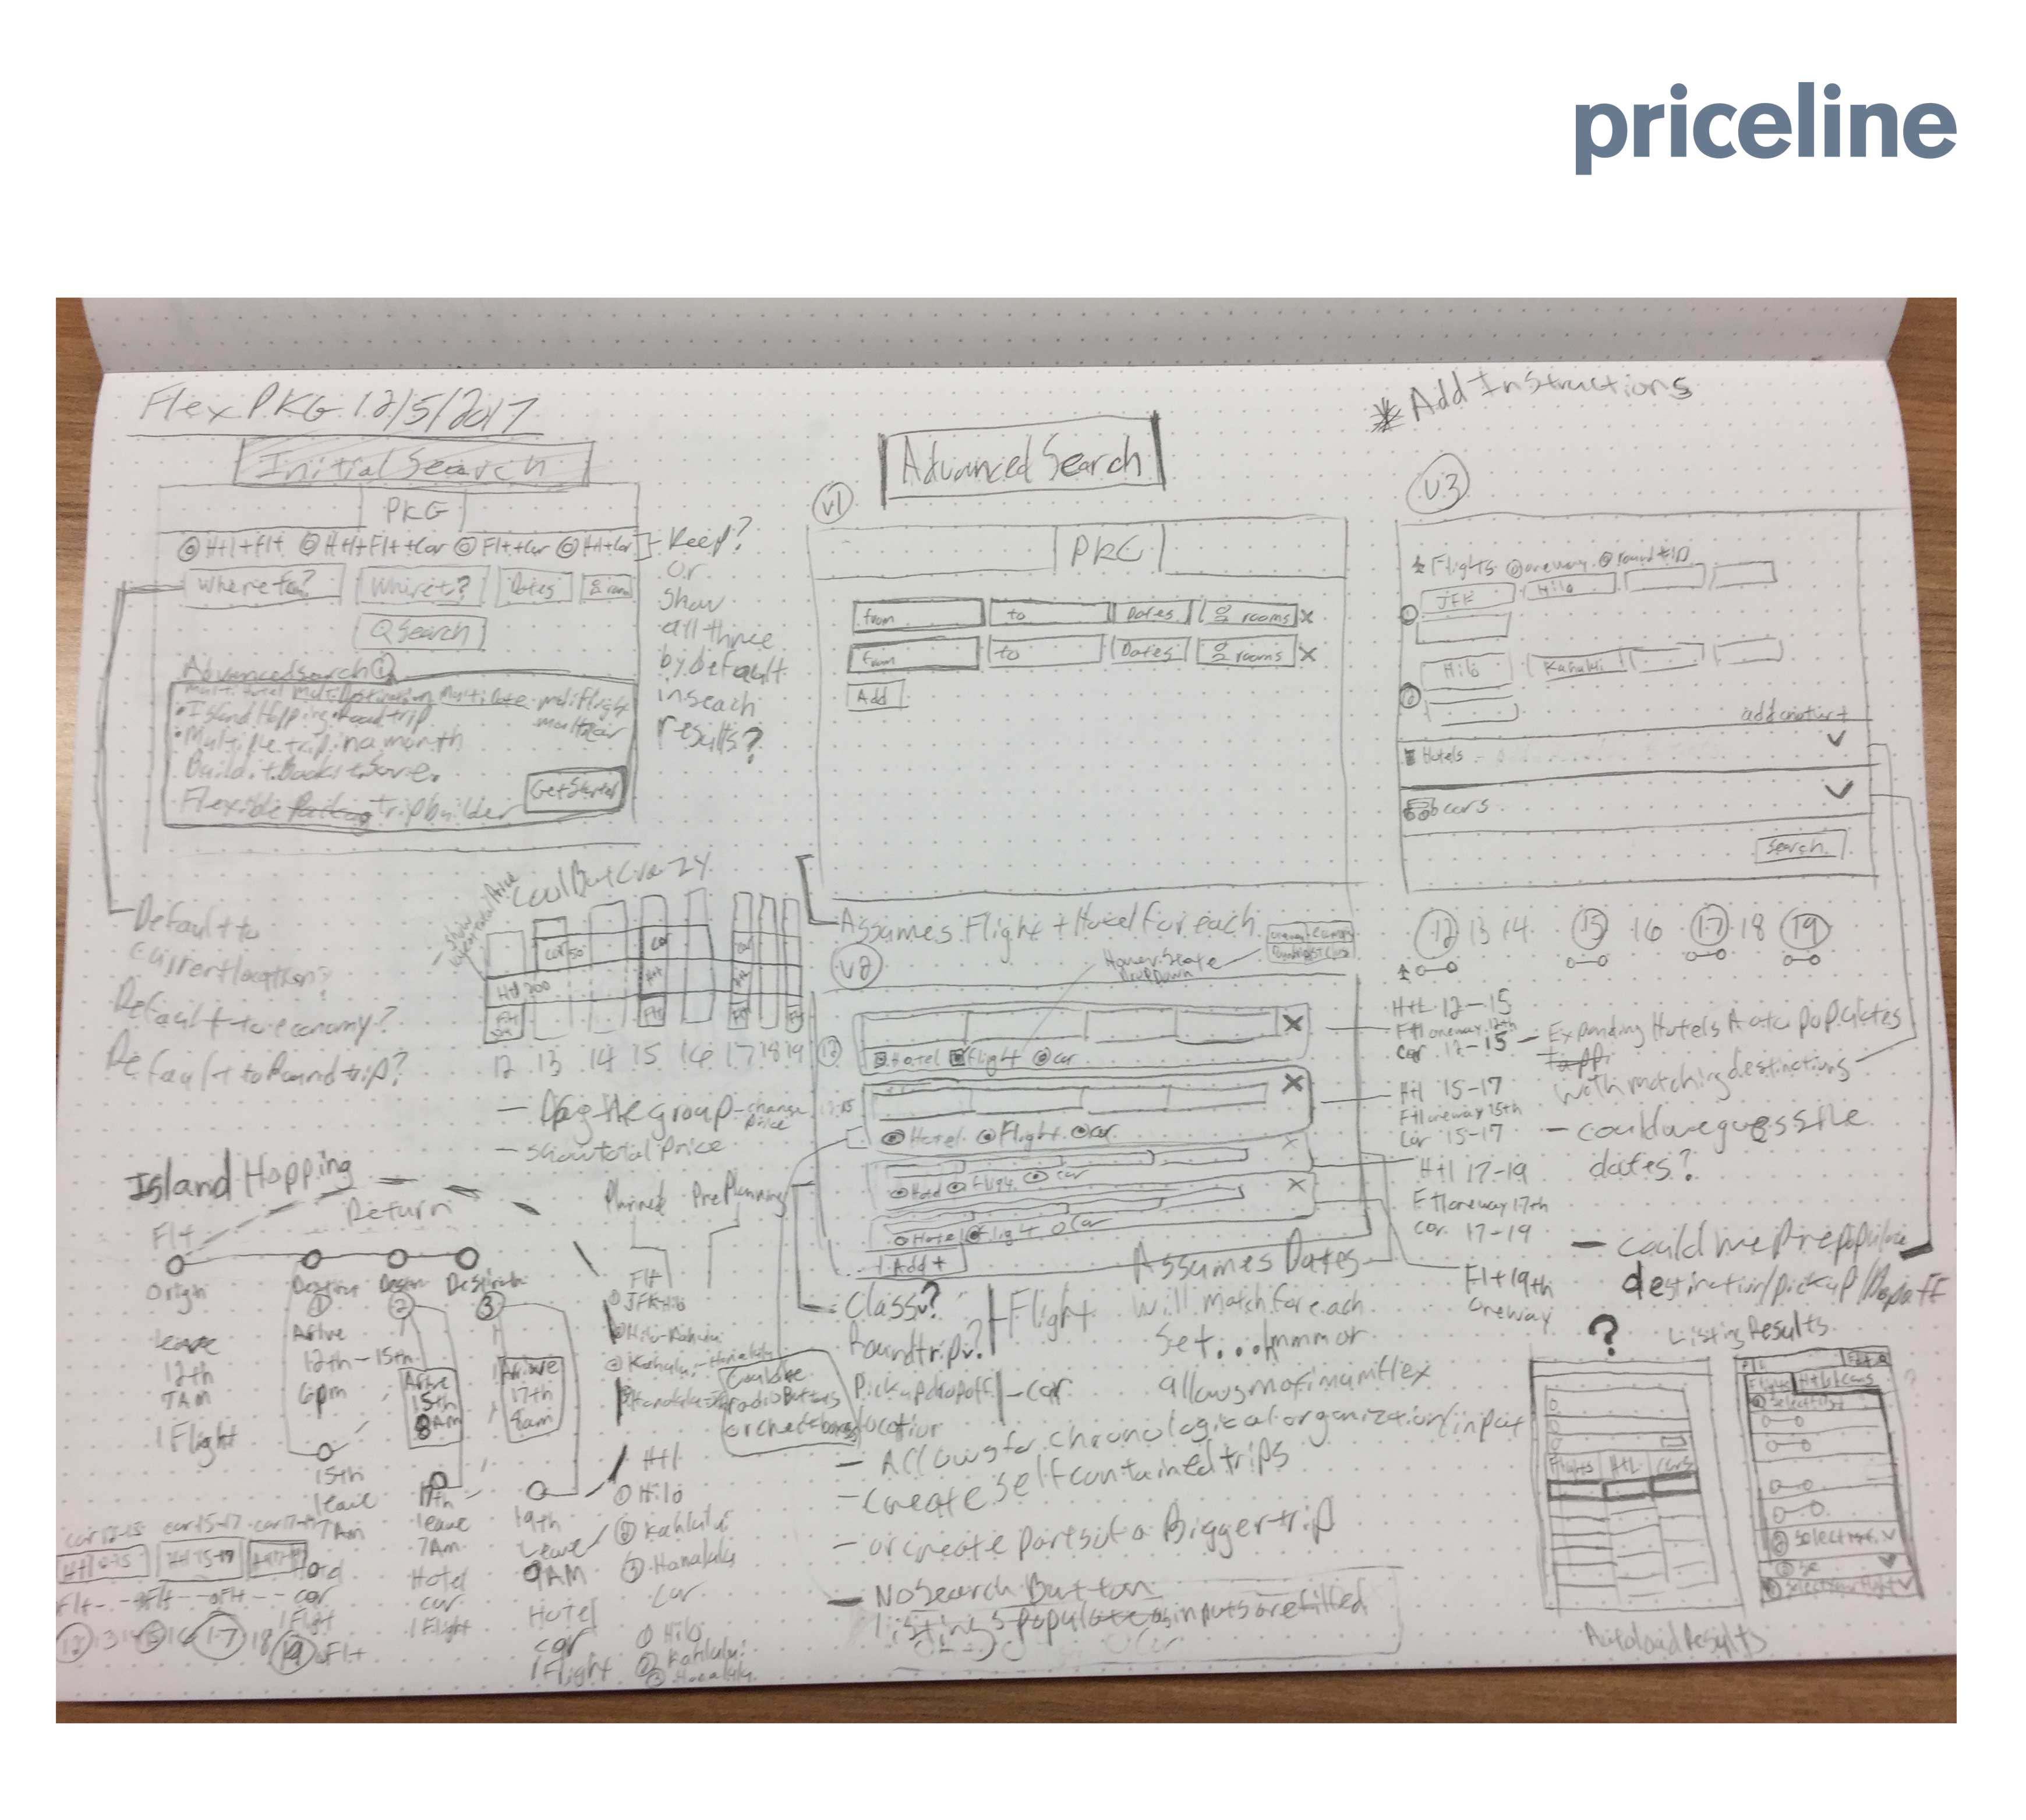 priceline
Flex PKG 12/5/2017
Initial Search
PKG
Htl+Flt Htl+Flt+Car Flt+Car Htl+Car
Keep?
or
show
all three
by default
in seach
results?
Where to?
Dates
Search
Advanced search
Multi Hotel Multi Destination Multi Date multi flight
multi car
• Island Hopping • Road trip
• Multiple trip in a month
Build it Book it Save.
Flexible trip builder
Get Started
Default to
current location?
Default to economy?
Default to Round trip?
Cool But Crazy
car 50
Htl 200
car
Htl
Flt
12 13 14 15 16 17 18 19
- Drag the group - change price
- show total Price
Advanced Search
V1
PKG
from to Dates rooms X
from to Dates rooms X
Add
Assumes Flight + Hotel For each
V2
Hover state
DropDown
Hotel Flight Car
X
Hotel Flight Car
X
Hotel Flight car
X
Hotel Flight Car
X
Add +
Assumes Dates
will match for each
set...hmmm or
Class?
Roundtrip?
Flight
Pickup dropoff
location
- car
Could be
radio Buttons
or checkboxes
- Allows for chronological organization/input
- create self contained trips
- or create parts of a Bigger trip
- No Search Button
listings populate as inputs are filled
* Add Instructions
V3
Flights oneway round trip
JFK Hilo
Hilo Kahului
add another +
Hotels
cars
Search
12 13 14 15 16 17 18 19
Htl 12-15
Flt oneway 12th
Car 12-15
Htl 15-17
Flt oneway 15th
Car 15-17
Htl 17-19
Flt oneway 17th
Car 17-19
Flt 19th
oneway
- Expanding Hotels Auto populates
with matching destinations
- could we guess the
dates?
- could we Prepopulate
destination/pickup/Dropoff
?
Listing Results
Flights Htl cars
Flights Htl cars
Select Flight
Select
Select your Flight
Autoload Results
Island Hopping
Return
Flt
Origin
leave
12th
7AM
1 Flight
Destination
1
Arrive
12th-15th
6pm
15th
leave
7Am
Hotel
car
1 Flight
2
Arrive
15th
8AM
17th
leave
7Am
Hotel
car
1 Flight
3
Arrive
17th
8am
19th
Leave
9AM
Hotel
car
1 Flight
Planned Pre Planning
Flt
JFK-Hilo
Hilo-Kahului
Htl
1 Hilo
2 Kahlului
3 Honalulu
Car
1 Hilo
2 Kahlului
3 Honalulu
car 12-15 car 15-17 car 17-19
Htl 12-15 Htl 15-17
Flt Flt Flt
12 13 14 15 16 17 18 19 Flt